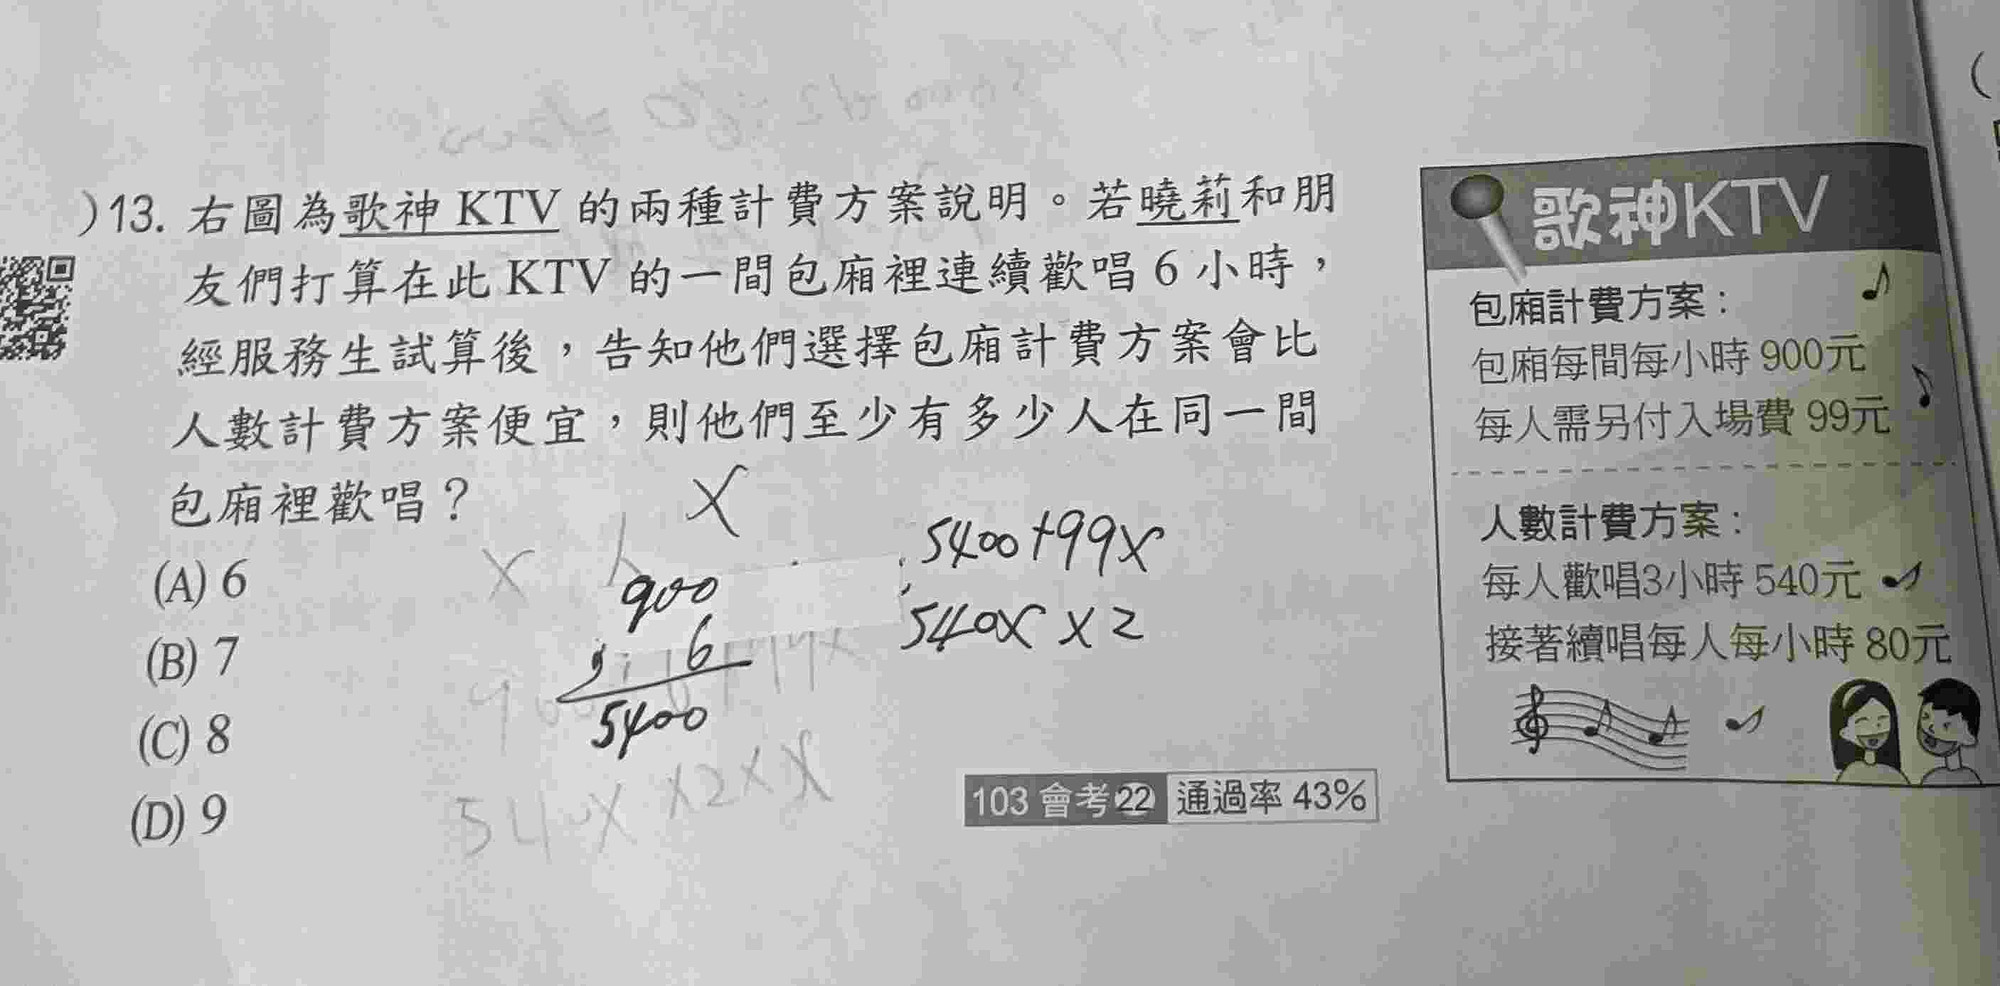 )13. 右圖為歌神 KTV 的兩種計費方案說明。若曉莉和朋
友們打算在此 KTV 的一間包廂裡連續歡唱 6 小時，
經服務生試算後，告知他們選擇包廂計費方案會比
人數計費方案便宜，則他們至少有多少人在同一間
包廂裡歡唱？
(A) 6
(B) 7
(C) 8
(D) 9
X
x 人
900
6
5400
5400+99x
540x x 2
540x x2xx
103 會考22 通過率 43%
歌神KTV
包廂計費方案：
包廂每間每小時 900元
每人需另付入場費 99元
人數計費方案：
每人歡唱3小時 540元
接著續唱每人每小時 80元
(